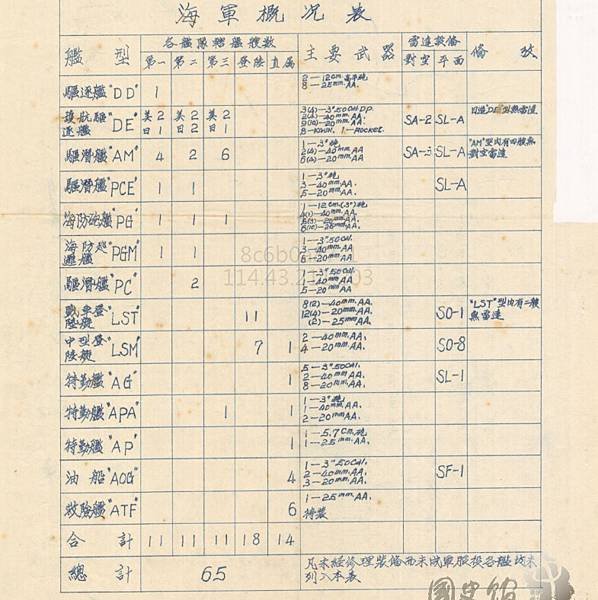 海軍概况表
艦型 各艦隊轄艦艘數 主要武器 雷達設備 備攷
第一 第二 第三 登陸 直屬 對空 平面
驅逐艦"DD" 1 2—12cm高平砲
8—25mm.AA.
護航驅逐艦"DE" 美2日1 美2日2 美2日1 3(4)—3"50Cal.D.P. SA-2 SL-A 日造"DE"型無雷達
驅潛艦"AM" 4 2 6 1—3"砲 SA-3 SL-A "AM"型內有四艘無對空雷達
驅潛艦"PCE" 1 1 1—3"砲 SL-A
3—40mm.AA.
5—20mm.AA.
海防砲艦"PG" 1 1 1 1—12cm(3")砲
海防巡邏艦"PGM" 1 1 1—3"50Cal.
驅潛艦"PC" 2 1—3"50Cal.
5—20mm.AA.
戰車登陸艇"LST" 11 8(12)—40mm.AA. SO-1 "LST"型內有二艘無雷達
12(4)—20mm.AA.
(2)—25mm.AA.
中型登陸艇"LSM" 7 1 2—40mm.AA. SO-8
4—20mm.AA.
特勤艦"AG" 1 5—3"50Cal. SL-1
2—40mm.AA.
8—20mm.AA.
特勤艦"APA" 1 1 1—3"砲
1—40mm.AA.
2—20mm.AA.
特勤艦"AP" 1 1—5.7Cm.砲
1—25mm.AA.
油船"AOG" 4 1—3"50Cal. SF-1
2—40mm.AA.
3—20mm.AA.
救險艦"ATF" 6 1—25mm.AA.
特裝
合計 11 11 11 18 14
總計 65 凡未經修理裝備而未成軍服役各艦艇未列入本表
國史館